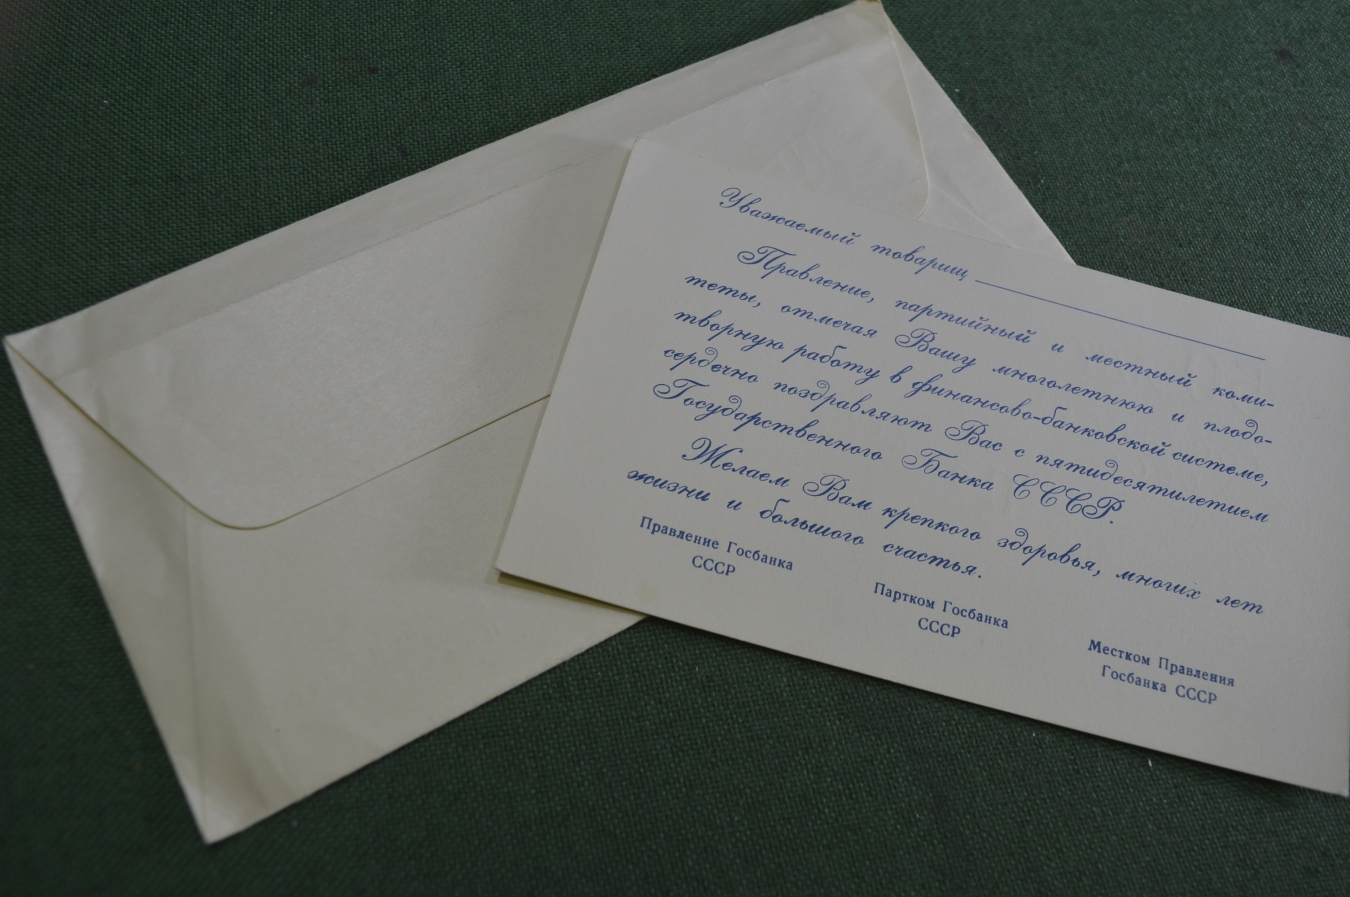 Уважаемый товарищ
Правление, партийный и местный коми-
теты, отмечая Вашу многолетнюю и плодо-
творную работу в финансово-банковской системе,
сердечно поздравляют Вас с пятидесятилетием
Государственного Банка СССР.
Желаем Вам крепкого здоровья, многих лет
жизни и большого счастья.
Правление Госбанка
СССР
Партком Госбанка
СССР
Местком Правления
Госбанка СССР